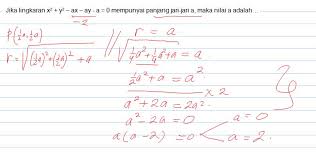 Jika lingkaran x² + y² – ax – ay - a = 0 mempunyai panjang jari jari a, maka nilai a adalah ...
-2
P(½a, ½a)
r = √((½a)² + (½a)² + a
r = a
√(¼a² + ¼a² + a = a
½a² + a = a²
x 2
a² + 2a = 2a²
a² - 2a = 0
a(a - 2) = 0
a = 0
a = 2.